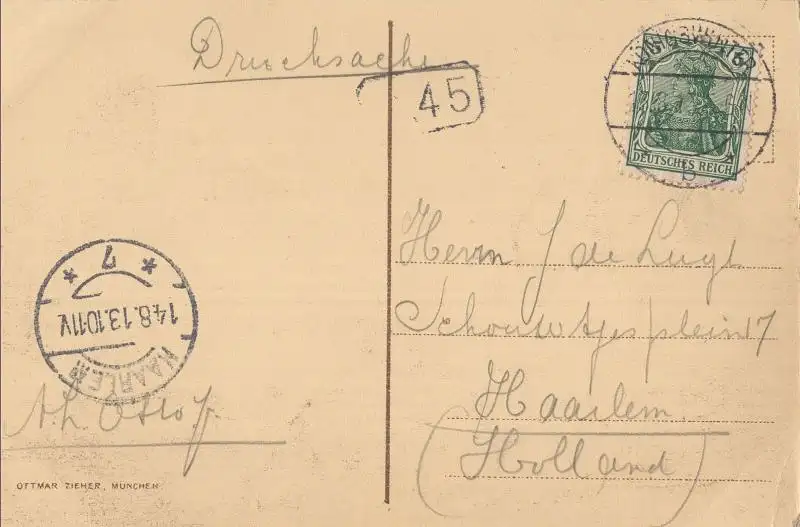 Drucksache
45
5
DEUTSCHES REICH
B
Herrn J. de Luyt
Schouwtjesplein 7
Haarlem
(Holland)
7
14.8.13.10-11V
HAARLEM
OTTMAR ZIEHER, MÜNCHEN